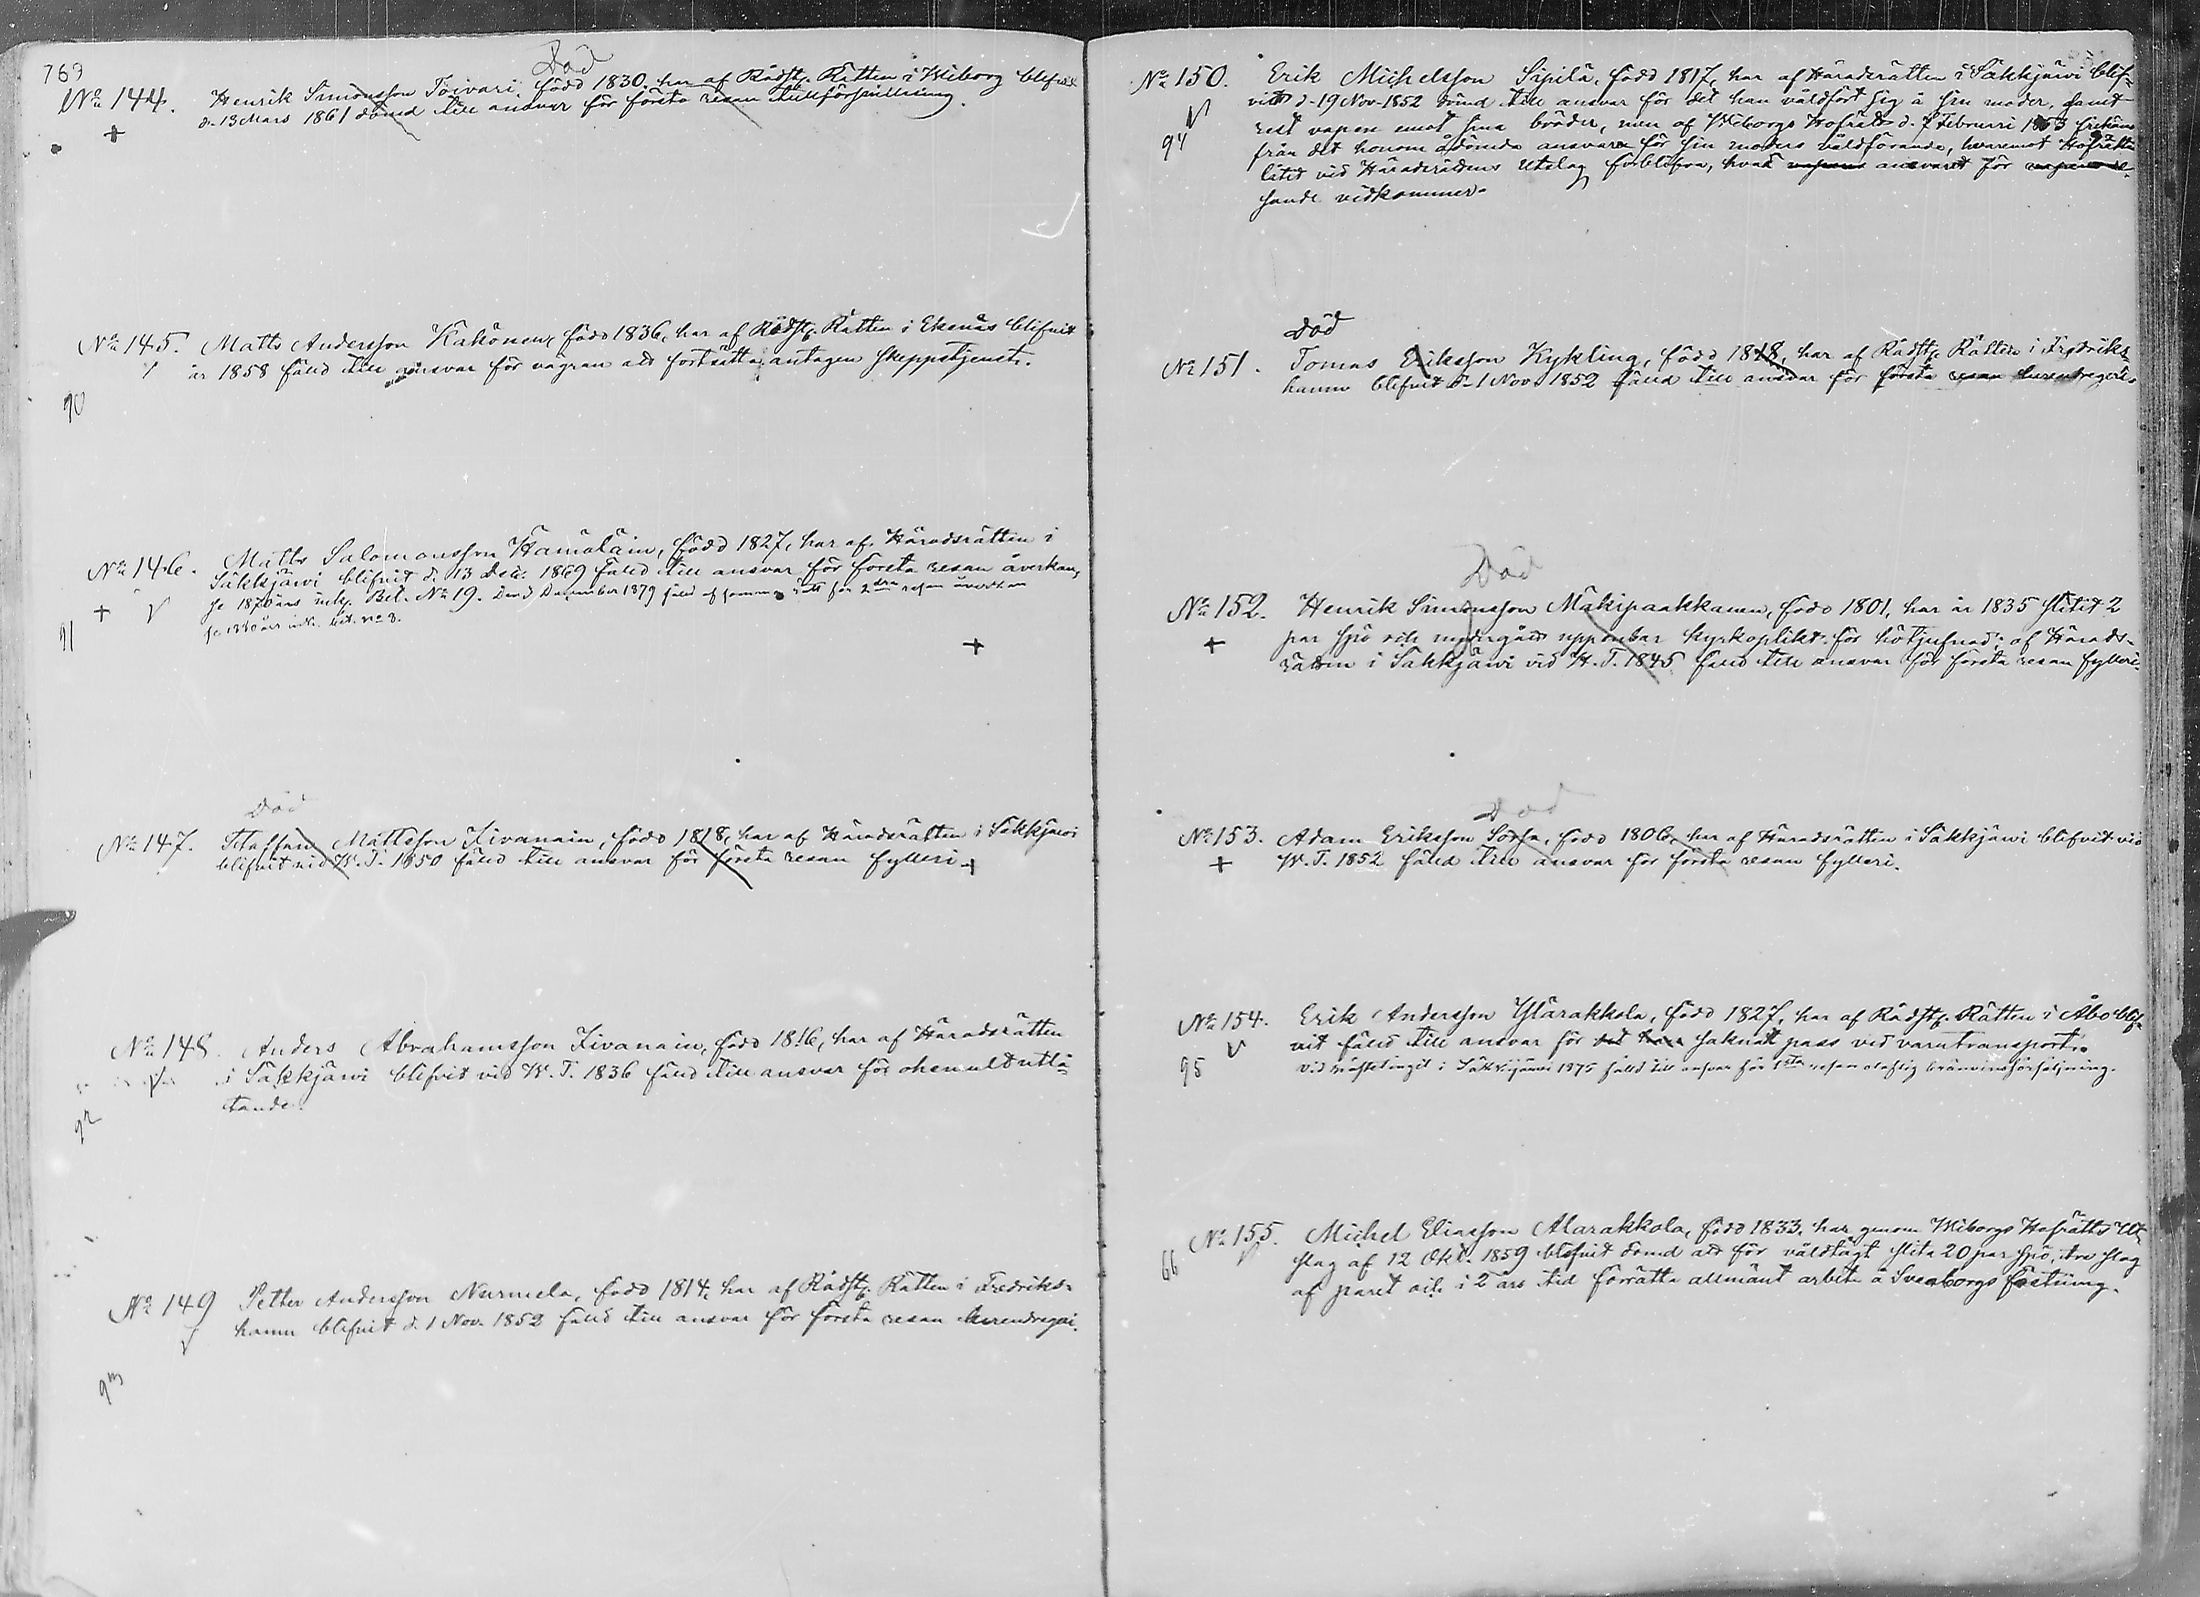 763
Död
No 144. Henrik Simonsson Toivari, född 1830, har af Rådstg. Rätten i Wiborg blifvit
d. 13 Mars 1861 dömd till ansvar för första resan tullförsnillning.
No 145. Matts Andersson Kakönen, född 1836, har af Rådstg. Rätten i Ekenäs blifvit
år 1858 fälld till ansvar för vägran att fortsätta antagen skeppstjenst.
90
No 146. Matts Salomonsson Hämäläin, född 1827, har af Häradsrätten i
Säkkjärvi blifvit d. 13 Dec. 1869 fälld till ansvar för första resan åverkan,
se 1870 års ink. Bet. No 19. Den 3 December 1879 fäld af samma rätt för 2dra resan åverkan
se 1880 års ink. bet. no 8.
91
Död
No 147. Staffan Mattsson Kivanain, född 1818, har af Häradsrätten i Säkkjärvi
blifvit vid W. T. 1850 fälld till ansvar för första resan fylleri.
No 148. Anders Abrahamsson Kivanain, född 1816, har af Häradsrätten
i Säkkjärvi blifvit vid W. T. 1836 fälld till ansvar för ohemult utlå-
tande.
92
No 149 Petter Andersson Nurmela, född 1814, har af Rådstg. Rätten i Fredriks-
hamn blifvit d. 1 Nov. 1852 fälld till ansvar för första resan lurendrejeri.
93
No 150. Erik Michelsson Sipilä, född 1817, har af Häradsrätten i Säkkjärvi blif-
vit d. 19 Nov. 1852 dömd till ansvar för det han våldfört sig å sin moder, samt
94 rest vapen emot sina bröder, men af Wiborgs Hofrätt d. 7 Februari 1853 frikänd
från det honom ådömda ansvaret för sin moders våldförande, hvaremot Hofrätten
låtit vid Häradsrättens Utslag förblifva, hvad ansvaret för
sande vidkommer.
Död
No 151. Tomas Eriksson Kykling, född 1818, har af Rådstg. Rätten i Fredriks-
hamn blifvit d. 1 Nov. 1852 fälld till ansvar för första resan lurendrejeri.
Död
No 152. Henrik Simonsson Mäkipaakkanen, född 1801, har år 1835 slitit 2
par spö och undergått uppenbar kyrkoplikt för hötjufnad; af Härads-
rätten i Säkkjärvi vid H. T. 1845 fälld till ansvar för första resan fylleri.
Död
No 153. Adam Eriksson Sorsa, född 1806, har af Häradsrätten i Säkkjärvi blifvit vid
W. T. 1852 fälld till ansvar för första resan fylleri.
No 154. Erik Andersson Ylärakkola, född 1827, har af Rådstg. Rätten i Åbo blif-
vit fälld till ansvar för det han saknat pass vid varutransport.
95 Vid hösttinget i Säkkijärvi 1875 fälld till ansvar för 1sta resan olaflig bränvinsförsäljning.
No 155. Michel Eliasson Alarakkola, född 1833, har genom Wiborgs Hofrätts Ut-
66 slag af 12 Okt. 1859 blifvit dömd att för våldtägt slita 20 par spö, tre slag
af paret och i 2 års tid förrätta allmänt arbete å Sveaborgs fästning.